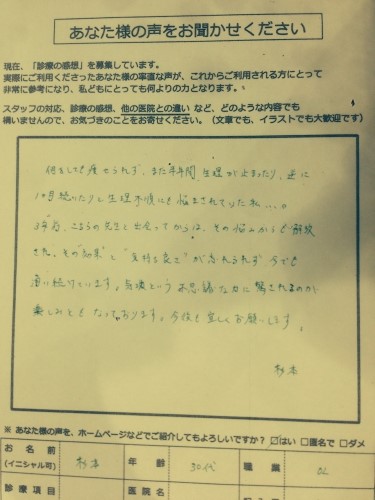 あなた様の声をお聞かせください
現在、「診療の感想」を募集しています。
実際にご利用くださったあなた様の率直な声が、これからご利用される方にとって
非常に参考になり、私どもにとっても何よりの力となります。
スタッフの対応、診療の感想、他の医院との違い など、どのような内容でも
構いませんので、お気づきのことをお寄せください。（文章でも、イラストでも大歓迎です）
何をしても痩せられず、また半年間 生理が止まったり、逆に
1ヶ月続いたりと生理不順にも悩まされていた私...。
3年前、こちらの先生と出会ってからは、その悩みからも解放
され、その"効果"と"気持ち良さ"が忘れられず 今でも
通い続けています。気壊という不思議な力に驚かされるのが
楽しみともなっております。今後も宜しくお願いします。
杉本
※ あなた様の声を、ホームページなどでご紹介してもよろしいですか？ ☑はい □匿名で □ダメ
お 名 前
(イニシャル可) 杉本 年 齢 30代 職 業 OL
診 療 項 目 医 院 名